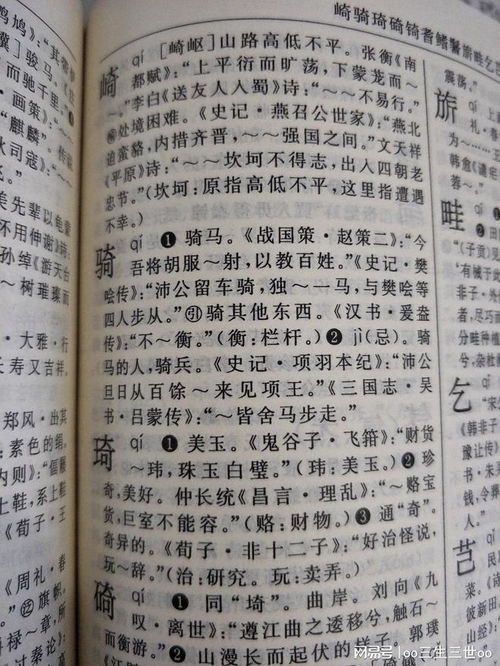 崎骑琦碕锜耆鳍鬐旂畦乞
崎 qí [崎岖]山路高低不平。张衡《南
都赋》：“上平衍而旷荡，下蒙笼而～
～。”李白《送友人入蜀》诗：“～～不易行。”
处境困难。《史记·燕召公世家》：“燕北
迫蛮貉，内措齐晋，～～强国之间。”文天祥
《平原》诗：“～～坎坷不得志，出入四朝老
忠节。”(坎坷：原指高低不平，这里指遭遇
不幸。)
骑 qí ❶骑马。《战国策·赵策二》：“今
吾将胡服～射，以教百姓。”《史记·樊
哙传》：“沛公留车骑，独～一马，与樊哙等
四人步从。”㊑骑其他东西。《汉书·爰盎
传》：“不～衡。”(衡：栏杆。)❷jì(忌)。骑
马的人，骑兵。《史记·项羽本纪》：“沛公
旦日从百馀～来见项王。”《三国志·吴
书·吕蒙传》：“～皆舍马步走。”
琦 qí ❶美玉。《鬼谷子·飞箝》：“财货
～玮，珠玉白璧。”(玮：美玉。)❷珍
奇，美好。仲长统《昌言·理乱》：“～赂宝
货，巨室不能容。”(赂：财物。)❸通“奇”。
奇异的。《荀子·非十二子》：“好治怪说，
玩～辞。”(治：研究。玩：卖弄。)
碕 qí ❶同“埼”。曲岸。刘向《九
叹·离世》：“遵江曲之逶移兮，触石～
而衡游。”❷山漫长而起伏的样子。郭璞
骏马。《
而驰千里。”
·画策》：“
“麒麟。传说
秋司寇》：“
美先辈以龟
不用伸谢》诗：
孙绰《游天台
～树璀璨而
·大雅·行
长寿又吉祥，
郑风·出其
：素色的绢。
内则》：“偪屦
上鞋，系上鞋
《荀子·王
《周礼·春
旗帜。
海禄～章，所
过秦论》：
震荡。
旂
畦
乞
芑
搜狐号@oo三生三世oo